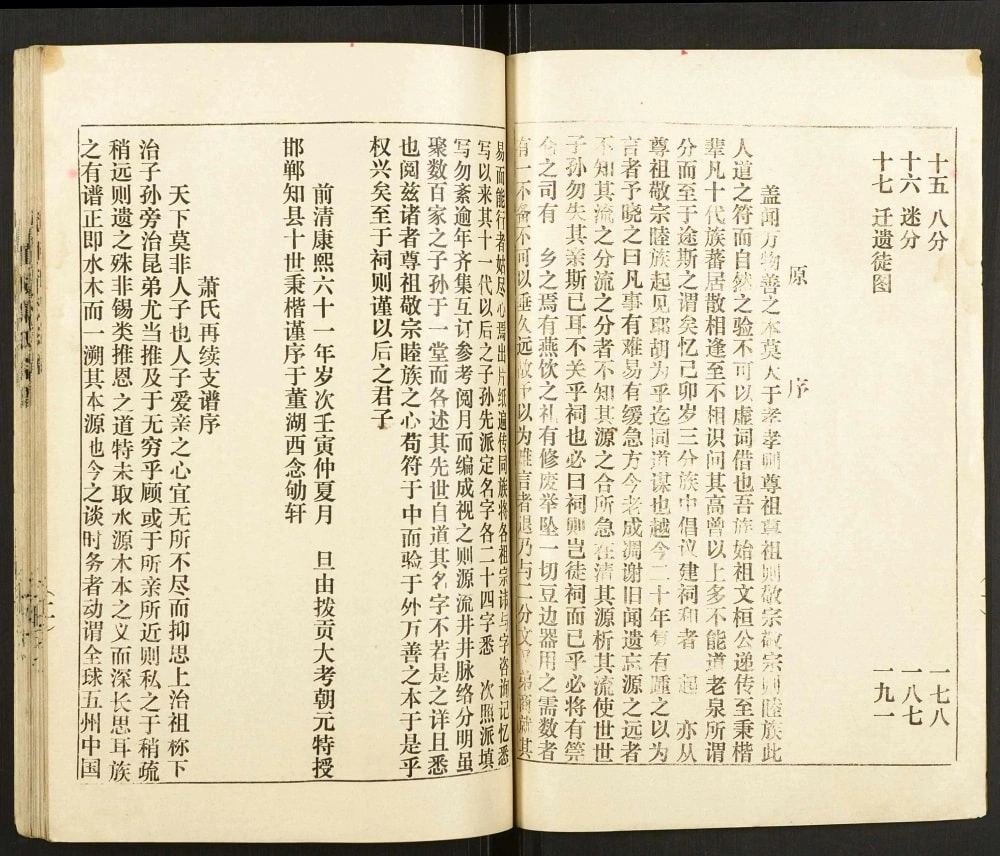 十五 八分 一七八
十六 迷分 一八七
十七 迁遗徒图 一九一
原序
盖闻万物善之本莫大于孝孝则尊祖尊祖则敬宗敬宗则睦族此
人道之符而自然之验不可以虚词借也吾族始祖文桓公递传至秉楷
辈凡十代族蕃居散相逢至不相识问其高曾以上多不能道老泉所谓
分而至于途斯之谓矣忆己卯岁三分族中倡议建祠和者 起 亦从
尊祖敬宗睦族起见耶胡为乎迄同道谋也越今二十年复有踵之以为
言者予晓之曰凡事有难易有缓急方今老成凋谢旧闻遗忘源之远者
不知其流之分流之分者不知其源之合所急在清其源析其流使世世
子孙勿失其亲斯已耳不关乎祠也必曰祠卿岂徒祠而已乎必将有
之司有 乡之焉有燕饮之礼有修废举坠一切豆边器用之需数者
有一不备不可以垂久远故予以为难言者退乃与二分文 弟 其
易而能行者姑尽心焉出片纸遍传同族将各祖宗讳与字咨询记忆悉
写以来其十一代以后之子孙先派定名字各二十四字悉 次照派填
写勿紊逾年齐集互订参考阅月而编成视之则源流井井脉络分明虽
聚数百家之子孙于一堂而各述其先世自道其名字不若是之详且悉
也阅兹诸者尊祖敬宗睦族之心苟符于中而验于外万善之本于是乎
权兴矣至于祠则谨以后之君子
前清康熙六十一年岁次壬寅仲夏月 旦由拨贡大考朝元特授
邯郸知县十世秉楷谨序于董湖西念劬轩
萧氏再续支谱序
天下莫非人子也人子爱亲之心宜无所不尽而抑思上治祖祢下
治子孙旁治昆弟尤当推及于无穷乎顾或于所亲所近则私之于稍疏
稍远则遗之殊非锡类推恩之道特未取水源木本之义而深长思耳族
之有谱正即水木而一溯其本源也今之谈时务者动谓全球五州中国